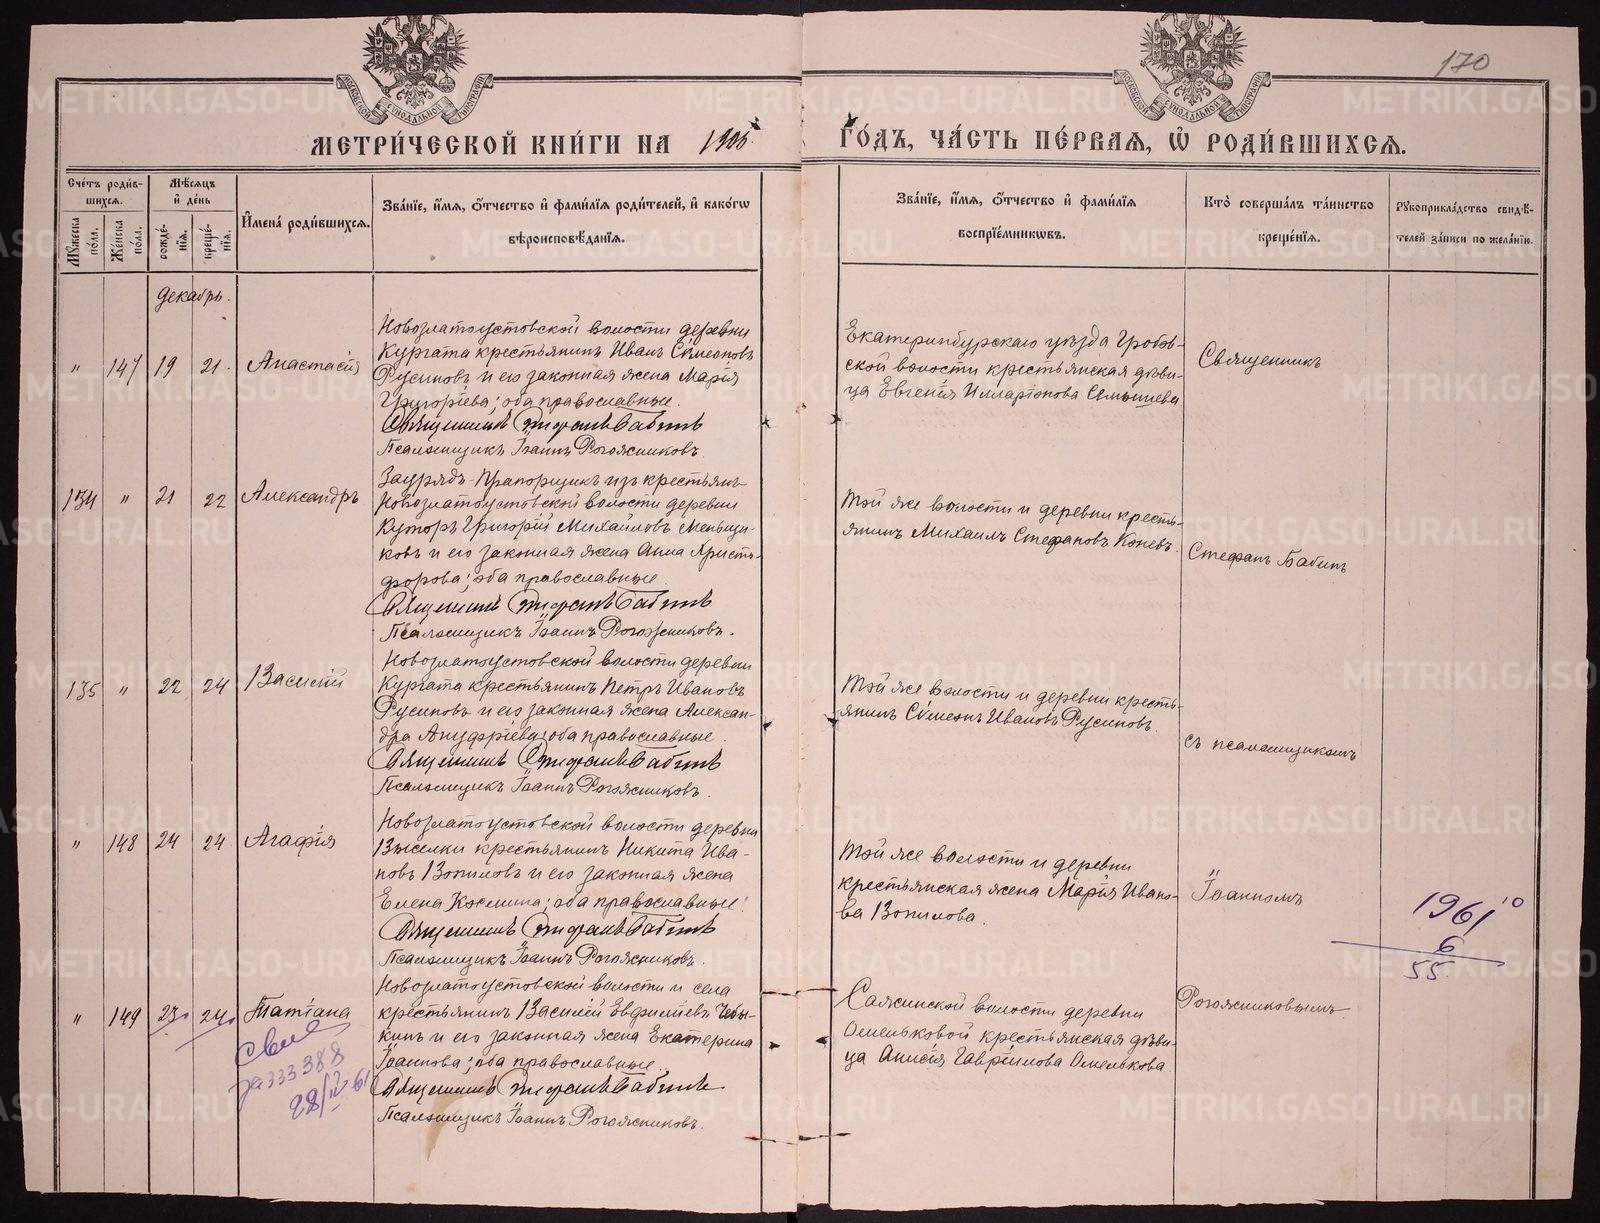 170
МЕТРИ́ЧЕСКОЙ КНИ́ГИ НА 1905
ГО́ДЪ, ЧА́СТЬ ПЕ́РВАѦ, Ѽ РОДИ́ВШИХСѦ.
Сче́тъ роди́в-
шихсѧ.
Мѣ́сѧцъ
и҆ де́нь
Мꙋ́жеска
по́ла.
Же́нска
по́ла.
рожде́-
нїѧ.
креще́-
нїѧ.
И҆мена̀ роди́вшихсѧ.
Зва́нїе, и҆́мѧ, ѻ҆́тчество и҆ фамі́лїѧ роди́телей, и҆ како́гѡ
вѣроисповѣ́данїѧ.
Зва́нїе, и҆́мѧ, ѻ҆́тчество и҆ фамі́лїѧ
воспрїе́мникѡвъ.
Кто̀ соверша́лъ та́инство
креще́нїѧ.
Рꙋкоприкла́дство свидѣ́-
телей за́писи по жела́нїю.
Декабрь.
" 147 19 21. Анастасія
Новозлатоустовской волости деревни
Кургата крестьянинъ Иванъ Сѵмеоновъ
Русиновъ и его законная жена Марія
Григоріева; оба православные.
Священникъ Стефанъ Бабинъ
Псаломщикъ Іоаннъ Рогожниковъ.
Екатеринбургскаго уѣзда Гробов-
ской волости крестьянская дѣви-
ца Евгенія Илларіонова
Священникъ
134 " 21 22 Александръ
Заурядъ-Прапорщикъ изъ крестьянъ
Новозлатоустовской волости деревни
Контуръ Григорій Михайловъ Меньши-
ковъ и его законная жена Анна Христо-
форова; оба православные.
Священникъ Стефанъ Бабинъ
Псаломщикъ Іоаннъ Рогожниковъ.
Той же волости и деревни кресть-
янинъ Михаилъ Стефановъ Коневъ.
Стефанъ Бабинъ
135 " 22 24 Василій
Новозлатоустовской волости деревни
Кургата крестьянинъ Петръ Ивановъ
Русиновъ и его законная жена Алексан-
дра Ануфріева; оба православные.
Священникъ Стефанъ Бабинъ
Псаломщикъ Іоаннъ Рогожниковъ.
Той же волости и деревни кресть-
янинъ Сѵмеонъ Ивановъ Русиновъ.
съ псаломщикомъ
" 148 24 24 Агафія
Новозлатоустовской волости деревни
Выселки крестьянинъ Никита Ива-
новъ Вопиловъ и его законная жена
Елена Козмина; оба православные.
Священникъ Стефанъ Бабинъ
Псаломщикъ Іоаннъ Рогожниковъ.
Той же волости и деревни
крестьянская жена Марія Ивано-
ва Вопилова.
Іоанномъ
1961 10
6
55.
" 149 23 24 Татіана
Новозлатоустовской волости и села
крестьянинъ Василій Евфиміевъ
кинъ и его законная жена Екатерина
Іоаннова; оба православные.
Священникъ Стефанъ Бабинъ
Псаломщикъ Іоаннъ Рогожниковъ.
Сажинской волости деревни
Омельковой крестьянская дѣви-
ца Анисія Гавріилова Омелькова
Рогожниковымъ
333388
28/IV 61